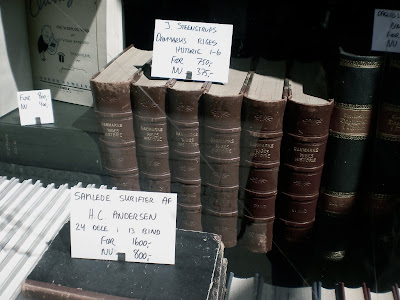 J. STEENSTRUPS
DANMARKS RIGES
HISTORIE 1-6
FØR 750,-
NU 375,-
FØR 800,-
NU 400,-
DANMARKS
RIGES
HISTORIE
DANMARKS
RIGES
HISTORIE
DANMARKS
RIGES
HISTORIE
DANMARKS
RIGES
HISTORIE
DANMARKS
RIGES
HISTORIE
DANMARKS
RIGES
HISTORIE
SAMLEDE SKRIFTER AF
H.C ANDERSEN
24 DELE I 13 BIND
FØR 1600,-
NU 800,-